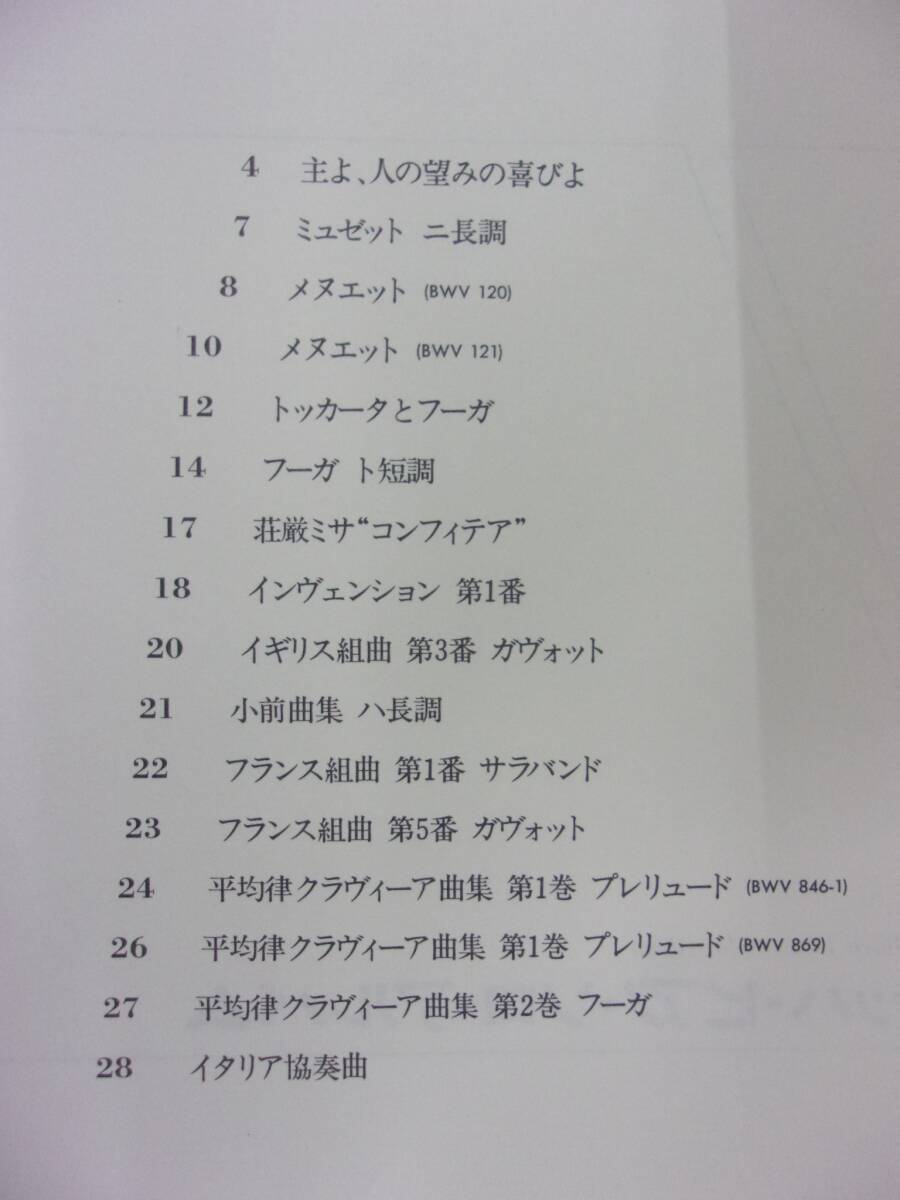 4 主よ、人の望みの喜びよ
7 ミュゼット ニ長調
8 メヌエット (BWV 120)
10 メヌエット (BWV 121)
12 トッカータとフーガ
14 フーガ ト短調
17 荘厳ミサ“コンフィテア”
18 インヴェンション 第1番
20 イギリス組曲 第3番 ガヴォット
21 小前曲集 ハ長調
22 フランス組曲 第1番 サラバンド
23 フランス組曲 第5番 ガヴォット
24 平均律クラヴィーア曲集 第1巻 プレリュード (BWV 846-1)
26 平均律クラヴィーア曲集 第1巻 プレリュード (BWV 869)
27 平均律クラヴィーア曲集 第2巻 フーガ
28 イタリア協奏曲